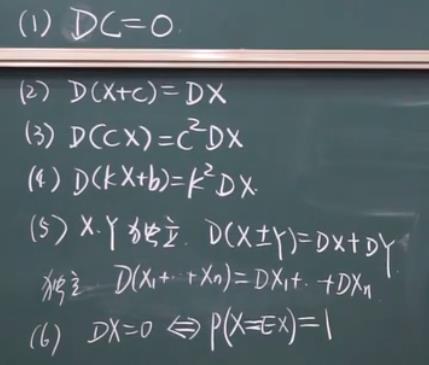 (1) DC=0.
(2) D(X+C)=DX
(3) D(CX)=C²DX
(4) D(kX+b)=k²DX.
(5) X.Y独立. D(X±Y)=DX+DY
独立 D(X₁+··+Xₙ)=DX₁+··+DXₙ
(6) DX=0 ⇔ P(X=EX)=1